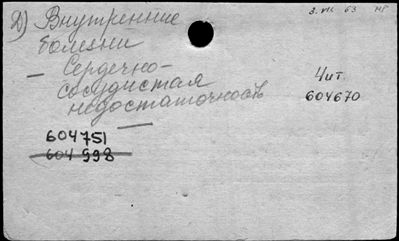 Д) Внутренние
болезни
— Сердечно-
сосудистая
недостаточность
3. VII 63
Чит.
604670
604751
604998